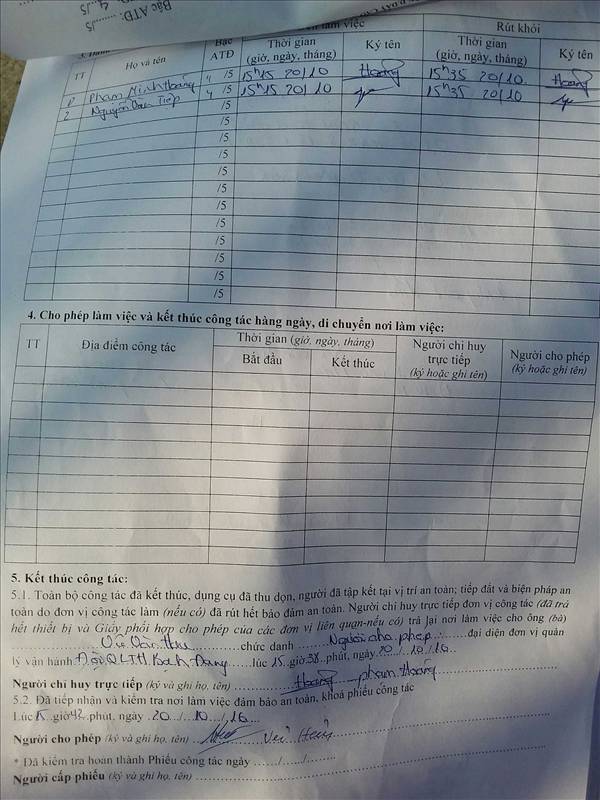 Bậc ATĐ: ....../5
4../5
..../5
làm việc
Rút khỏi
TT
Họ và tên
Bậc ATĐ
Thời gian (giờ, ngày, tháng)
Ký tên
Thời gian (giờ, ngày, tháng)
Ký tên
1 Phạm Minh Hoàng 4 /5 15h15 20/10 Hoàng 15h35 20/10 Hoàng
2 Nguyễn Văn Tiệp 4 /5 15h15 20/10 15h35 20/10
/5
/5
/5
/5
/5
/5
/5
/5
/5
/5
/5
/5
4. Cho phép làm việc và kết thúc công tác hàng ngày, di chuyển nơi làm việc:
TT
Địa điểm công tác
Thời gian (giờ, ngày, tháng)
Bắt đầu
Kết thúc
Người chỉ huy trực tiếp (ký hoặc ghi tên)
Người cho phép (ký hoặc ghi tên)
5. Kết thúc công tác:
5.1. Toàn bộ công tác đã kết thúc, dụng cụ đã thu dọn, người đã tập kết tại vị trí an toàn; tiếp đất và biện pháp an
toàn do đơn vị công tác làm (nếu có) đã rút hết bảo đảm an toàn. Người chỉ huy trực tiếp đơn vị công tác (đã trả
hết thiết bị và Giấy phối hợp cho phép của các đơn vị liên quan-nếu có) trả lại nơi làm việc cho ông (bà)
Vũ Văn ......chức danh ......Người cho phép......đại diện đơn vị quản
lý vận hành:Đội QLTH Bạch Đằng......lúc 15.giờ38..phút, ngày 20../..10../16...
Người chỉ huy trực tiếp (ký và ghi họ, tên) ......Hoàng phạm Hoàng
5.2. Đã tiếp nhận và kiểm tra nơi làm việc đảm bảo an toàn, khoá phiếu công tác
Lúc 15.giờ42.phút, ngày .20../..10../.16...
Người cho phép (ký và ghi họ, tên) ......
* Đã kiểm tra hoàn thành Phiếu công tác ngày ....../....../......
Người cấp phiếu (ký và ghi họ, tên) ......